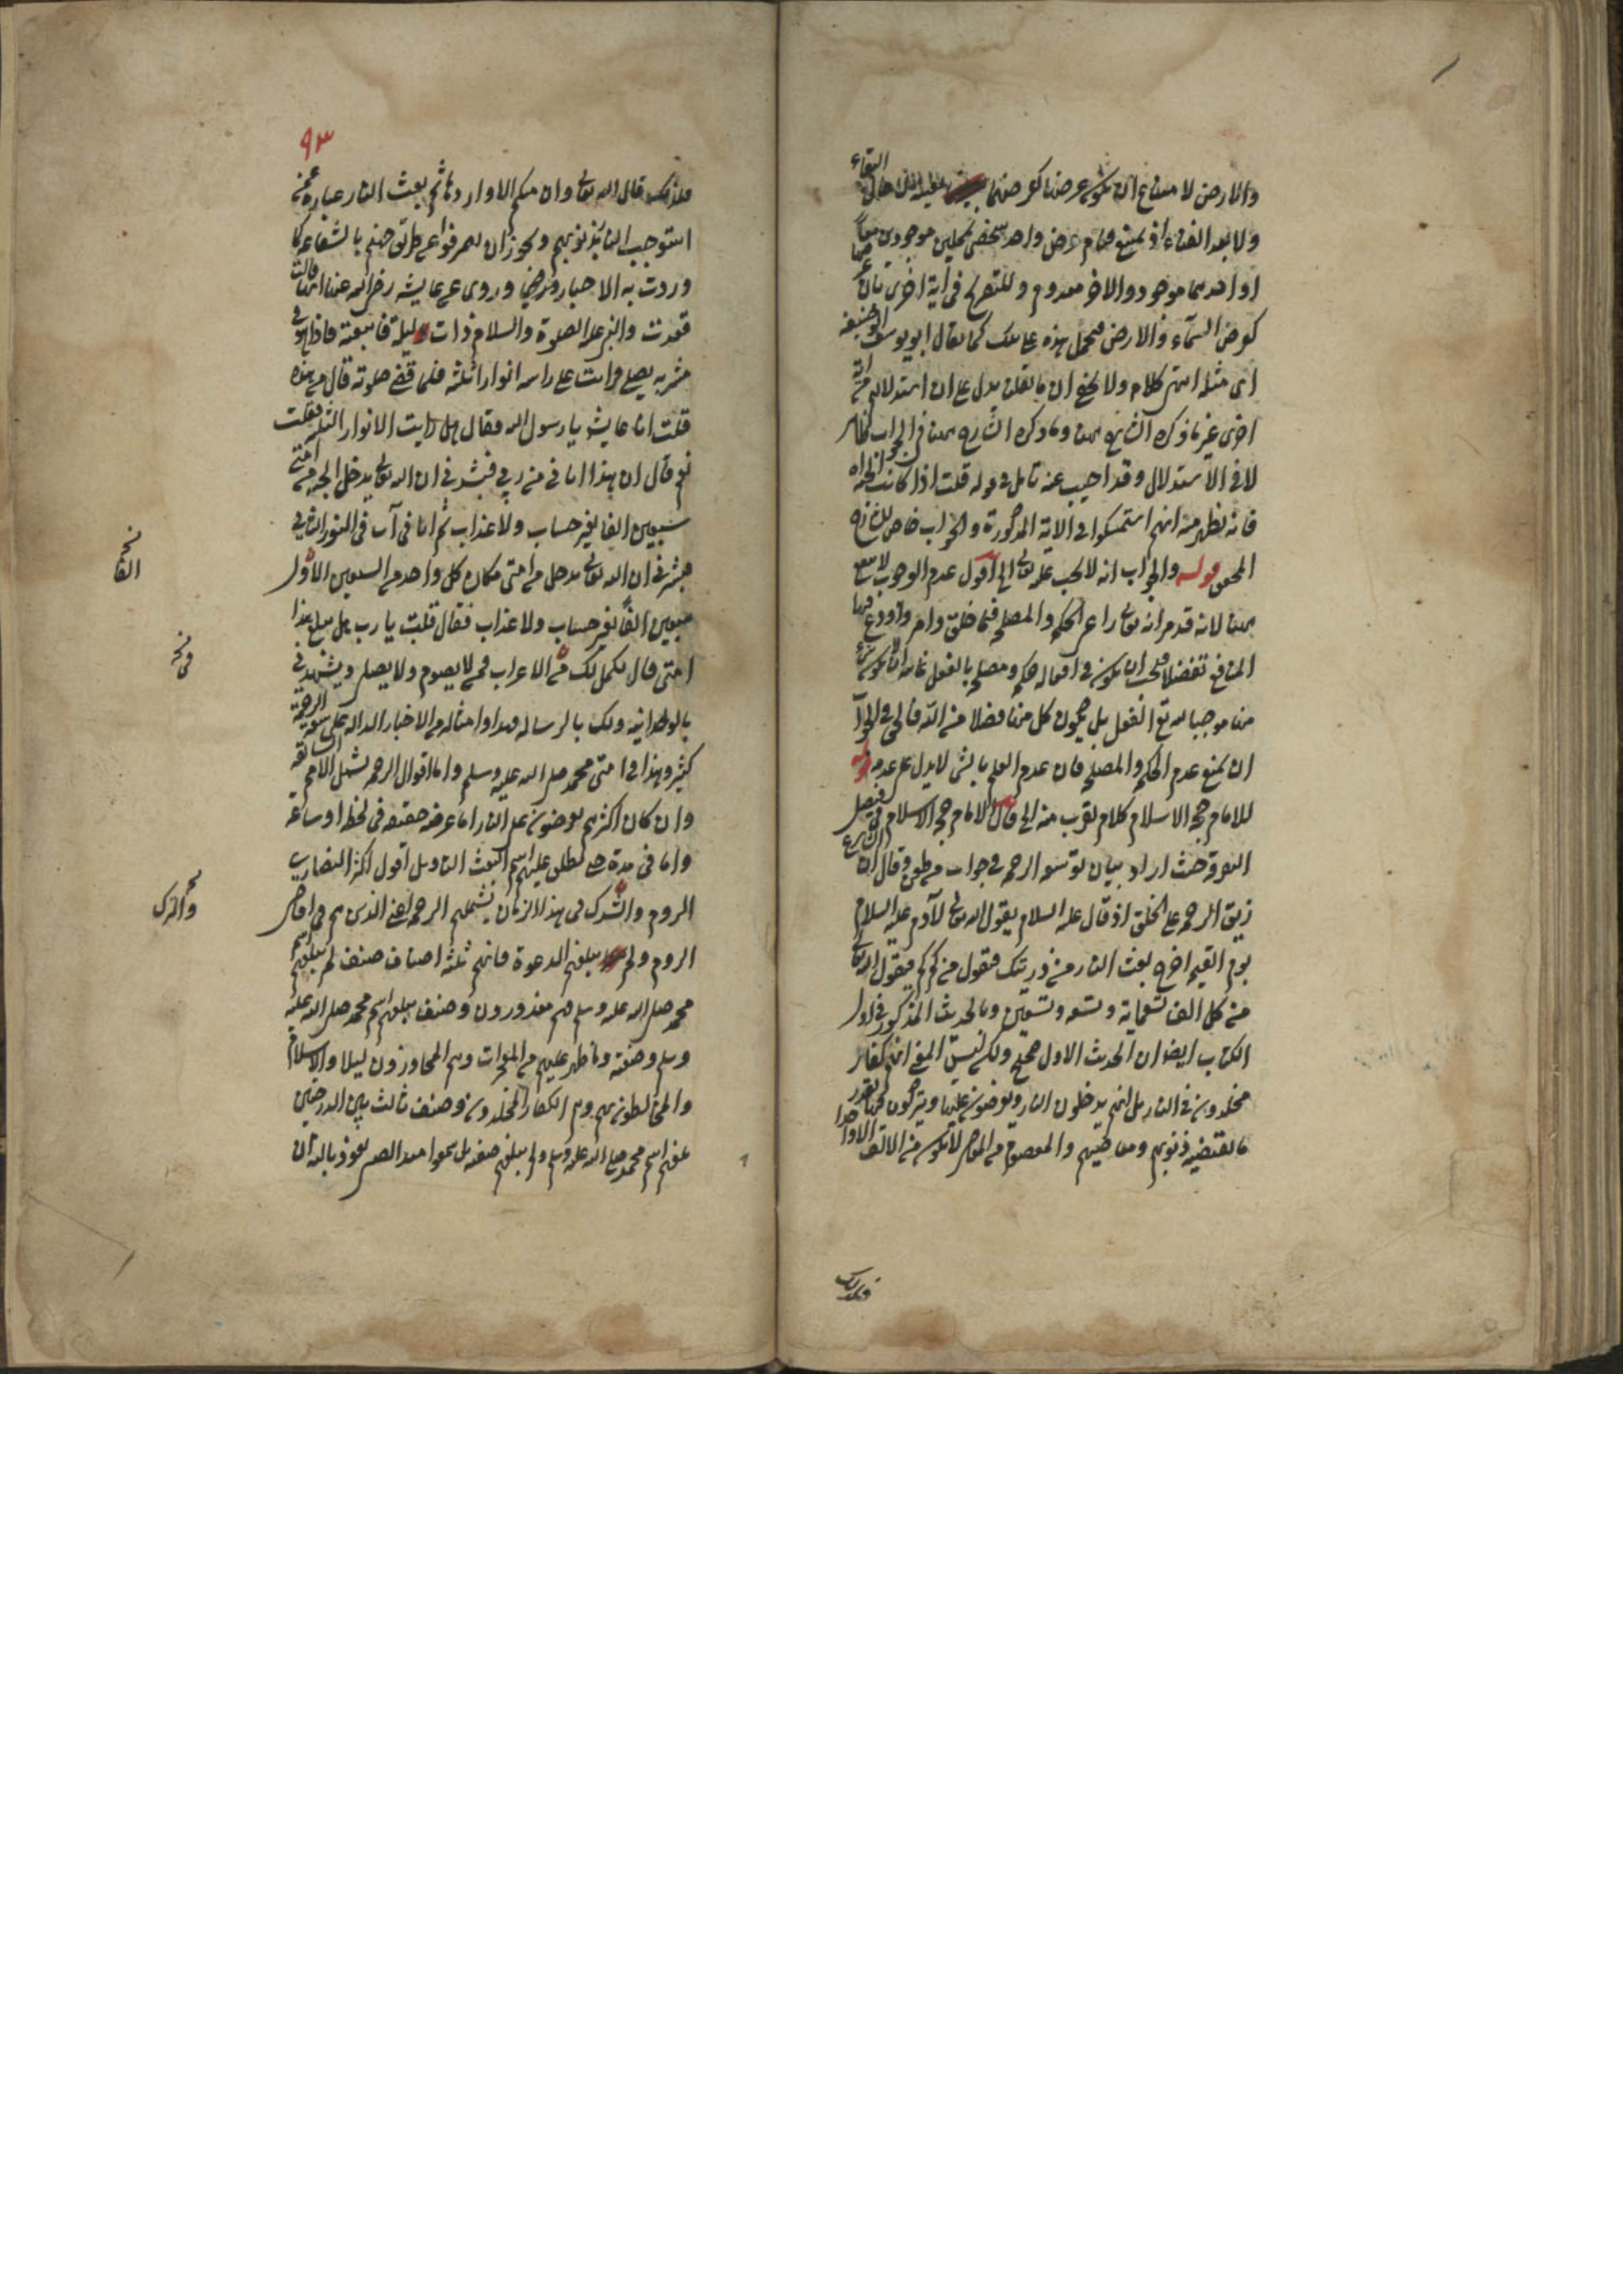 والارض لا مساغ ان يكون عرضنا كعرضها البقاء
ولا بعد الفناء اذ يمتنع قيام عرض واحد شخصي بمحلين موجودين معا
او احدهما موجود والاخر معدوم وللتصريح في آية اخرى بان عرضها
كعرض السماء والارض فيحمل هذه على تلك كما يقال ابو يوسف ابو حنيفة
اى مثله انتهى كلامه ولا يخفى ان ما نقلنا يدل على ان استدلالهم من آية
اخرى غير ما ذكره الشارح ههنا وما ذكره الشارح ههنا في الجواب
لا في الاستدلال وقد اجيب عنه تامل في قوله قلت اذا كانت الجنة
فانه يظهر منه انهم استمسكوا في الآية المذكورة والجواب خاص للشارح
المحقق قوله والجواب انه لا يجب عليه تعالى الى اقول عدم الوجوب
ههنا لانه قد مر انه تعالى راعى الحكم والمصلحة فيما خلق وامر واودع فيها
المنافع تفضلا فيحسن ان يكون في افعاله حكم ومصلحة بالفعل غايته ان لا يكون شيء
منها موجبا له تعالى الفعل بل يكون كل منها فضلا منه
ان يمنع عدم الحكم والمصلحة فان عدم العلم بالشيء لا يدل على عدمه قوله
للامام حجة الاسلام كلام يقرب منه الى قال الامام حجة الاسلام في فيصل
التفرقة حيث اراد بيان توسعة الرحمة في جواب من طعن وقال ان الشارع
ضيق الرحمة على الخلق اذ قال عليه السلام يقول الله تعالى لآدم عليه السلام
يوم القيمة اخرج بعث النار من ذريتك فيقول من كم كم فيقول الله تعالى
من كل الف تسعمائة وتسعة وتسعين وبالحديث المذكور في اول
الكتاب ايضا ان الحديث الاول صحيح ولكن ليس المعنى انهم كفار
مخلدون في النار بل انهم يدخلون النار ويعرضون عليها ويتركون فيها بقدر
ما يقتضيه ذنوبهم ومعاصيهم والمعصوم من المعاصي لا يكون من الالف الا واحدا
فلذلك
٩٣
فلذلك قال الله تعالى وان منكم الا واردها ثم بعث النار عبارة عمن
استوجب النار بذنوبهم ويجوز ان يصرفوا عن طريق جهنم بالشفاعة كما
وردت به الاخبار وروى عن عايشة رضي الله عنها انها قالت
فقدت النبي عليه الصلوة والسلام ذات ليلة فاتبعته فاذا هو في
مشربة يصلي فرايت على راسه انوارا ثلثة فلما قضى صلوته قال من هذه
قلت انا عايشة يا رسول الله فقال هل رايت الانوار الثلثة فقلت
نعم قال ان هذا اتاني من ربي فبشرني ان الله تعالى يدخل الجنة من امتي
سبعين الفا بغير حساب ولا عذاب ثم اتاني آت في النور الثاني
فبشرني ان الله تعالى يدخل من امتي مكان كل واحد من السبعين الاول
سبعين الفا بغير حساب ولا عذاب فقال قلت يا رب هل يبلغ هذا
امتي قال نكمل لك من الاعراب ممن لا يصوم ولا يصلي ويشهد لي
بالوحدانية ولك بالرسالة فهذا وامثاله من الاخبار الدالة على سعة الرحمة
كثير وهذا في امتي محمد صلى الله عليه وسلم واما اقول الرحمة تشمل الامم السالفة
وان كان اكثرهم يعرضون على النار اما عرضة خفيفة في لحظة او ساعة
واما في مدة حتى يطلق عليهم اسم البعث بل اقول اكثر النصارى
الروم والترك في هذا الزمان يشملهم الرحمة اعني الذين هم في اقاصي
الروم ولم يبلغهم الدعوة فانهم ثلثة اصناف صنف لم يبلغهم اسم
محمد صلى الله عليه وسلم فهم معذورون وصنف بلغهم اسم محمد صلى الله عليه
وسلم وصفته وما ظهر عليهم من المعجزات وهم المجاورون لبلاد الاسلام
والمخالطون بهم وهم الكفار المخلدون وصنف ثالث بين الدرجتين
بلغهم اسم محمد صلى الله عليه وسلم ولم يبلغهم صفته بل سمعوا نعوذ بالله ان
نخ
الفا
نخ
والترك